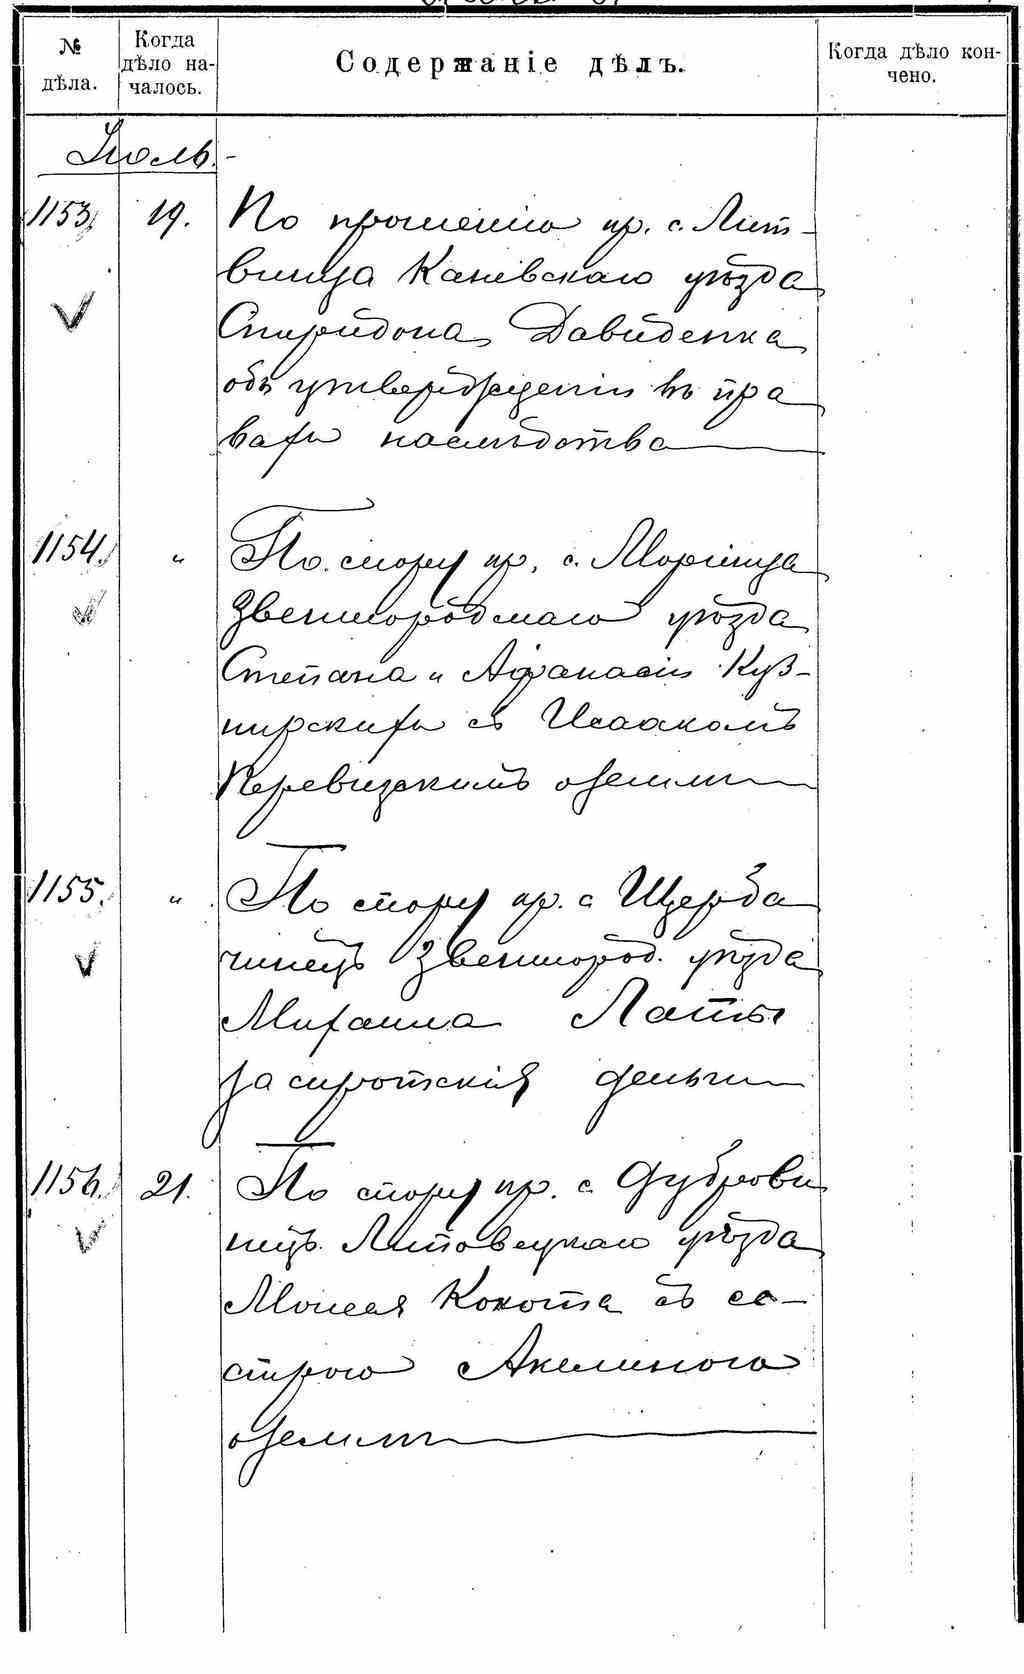 № дѣла.
Когда дѣло на-
чалось.
Содержаніе дѣлъ.
Когда дѣло кон-
чено.
Іюль.
1153. 19. По прошенію кр. с. Лит-
винца Каневскаго уѣзда
Спиридона Давиденка
объ утвержденіи въ пра
вахъ наслѣдства
1154. " По спору кр. с. Моринца
Звенигородскаго уѣзда
Степана и Афанасія
съ Исаакомъ
о землѣ
1155. " По спору кр. с Щерба
шинецъ Звенигород. уѣзда
Михаила Лапы
за сиротскія деньги
1156. 21. По спору кр. с Дуброви
нецъ Липовецкаго уѣзда
Моисея Кокота съ се-
строю Акелиною
о землѣ